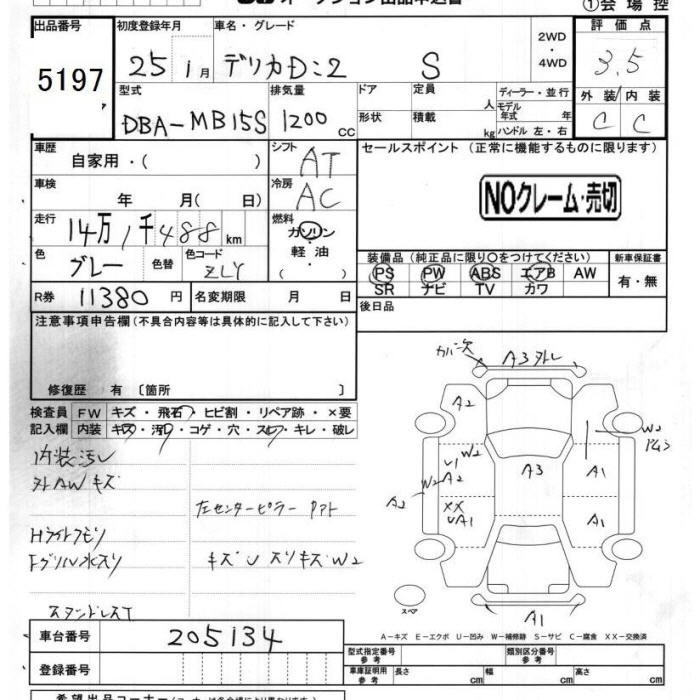 ①会場控
出品番号
5197
初度登録年月
25 1月
車名・グレード
デリカD:2 S
2WD
・
4WD
評価点
3.5
外装 内装
C C
型式
DBA-MB15S
排気量
1200 CC
ドア
形状
定員 人
積載 kg
ディーラー・並行
モデル年式 年
ハンドル 左・右
車歴
自家用・( )
シフト
AT
セールスポイント (正常に機能するものに限ります)
NOクレーム・売切
車検
年 月( 日)
冷房
AC
走行
14万1千488km
燃料
ガソリン
・
軽油
・
( )
色
グレー
色替
色コード
ZLY
装備品(純正品に限り○をつけてください)
PS PW ABS エアB AW
SR ナビ TV カワ
新車保証書
有・無
R券 11380円
名変期限 月 日
後日品
注意事項申告欄(不具合内容等は具体的に記入して下さい)
修復歴 有〔箇所 〕
検査員 FW キズ・飛石・ヒビ割・リペア跡・×要
記入欄 内装 キズ・汚れ・コゲ・穴・スレ・キレ・破レ
内装汚レ
外AWキズ
左センターピラー アト
Hライトクモリ
Fグリル水スリ
キズU スリキズW2
スタンドレスT
A3外レ
A2
W2
U1
W2
A2
A3
A1
W2
A2
XX
UA1
A1
スペア
A1
A-キズ E-エクボ U-凹み W-補修跡 S-サビ C-腐食 XX-交換済
車台番号
205134
登録番号
型式指定番号
参考
類別区分番号
参考
車庫証明用
参考
長さ cm 幅 cm 高さ cm